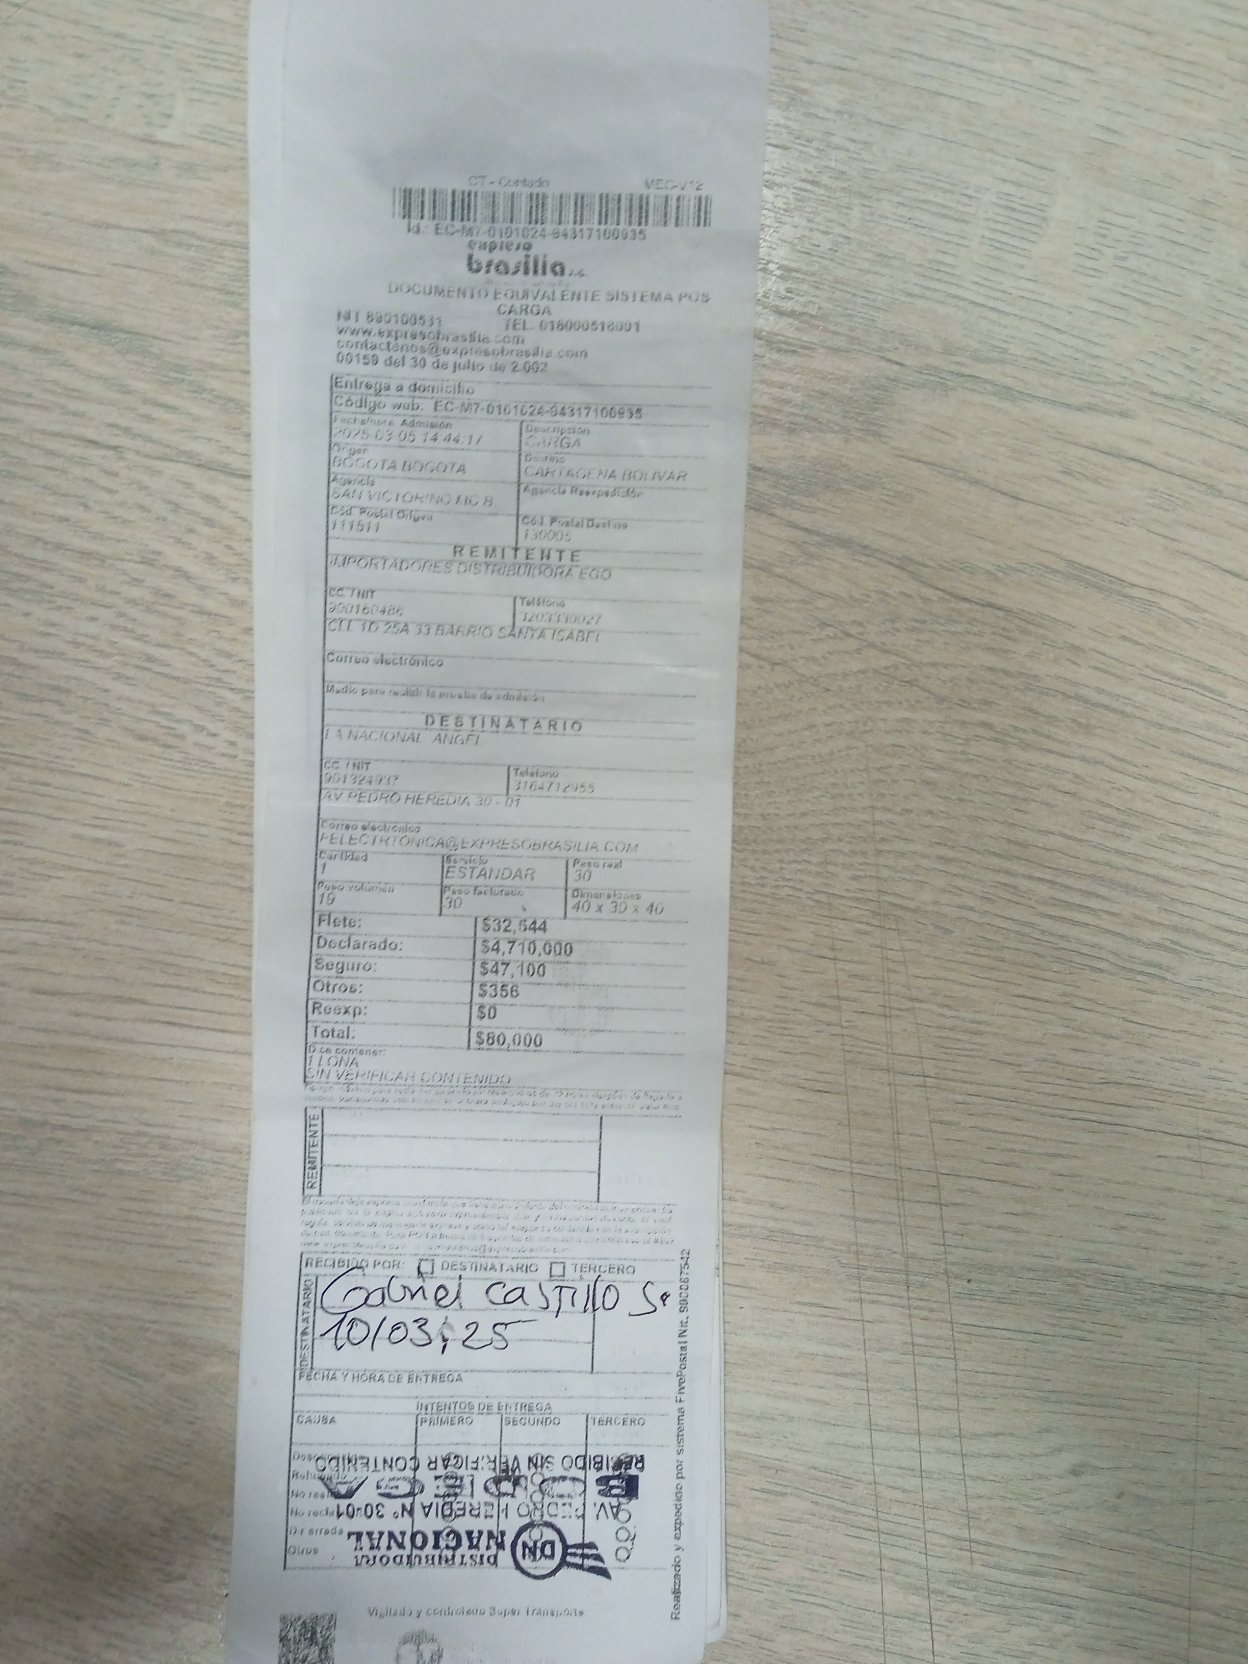 CT - Contado MEC-V12
Id.: EC-M7-0101624-04317100935
expreso
brasilia S.A.
DOCUMENTO EQUIVALENTE SISTEMA POS
CARGA
NIT 890100531 TEL. 018000518001
www.expresobrasilia.com
contactenos@expresobrasilia.com
00150 del 30 de julio de 2.002
Entrega a domicilio
Código web: EC-M7-0101624-04317100935
Fecha/hora Admisión Descripción
2025-03-05 14:44:17 CARGA
Origen Destino
BOGOTA BOGOTA CARTAGENA BOLIVAR
Agencia Agencia Reexpedición
SAN VICTORINO MC B
Cód. Postal Origen Cód. Postal Destino
111611 130005
REMITENTE
IMPORTADORES DISTRIBUIDORA EGO
CC. / NIT Teléfono
900160486 3203330027
CLL 1D 25A 33 BARRIO SANTA ISABEL
Correo electrónico
Medio para recibir la prueba de admisión
DESTINATARIO
LA NACIONAL ANGEL
CC. / NIT Teléfono
901324937 3164712955
AV PEDRO HEREDIA 30 - 01
Correo electrónico
FELECTRTONICA@EXPRESOBRASILIA.COM
Cantidad Servicio Peso real
1 ESTANDAR 30
Peso volumen Peso facturado Dimensiones
19 30 40 x 30 x 40
Flete: $32,544
Declarado: $4,710,000
Seguro: $47,100
Otros: $356
Reexp: $0
Total: $80,000
Dice contener:
1 LONA
SIN VERIFICAR CONTENIDO
REMITENTE
RECIBIDO POR: DESTINATARIO TERCERO
DESTINATARIO
Gabriel CASTILLO S.
10/03/25
FECHA Y HORA DE ENTREGA
INTENTOS DE ENTREGA
CAUSA PRIMERO SEGUNDO TERCERO
No recla
Dir errada
Otros
DN DISTRIBUIDORA
NACIONAL
AV. PEDRO HEREDIA N° 30-01
BODEGA
RECIBIDO SIN VERIFICAR CONTENIDO
Vigilado y controlado Super Transporte
Realizado y expedido por sistema FivePostal Nit. 900087542